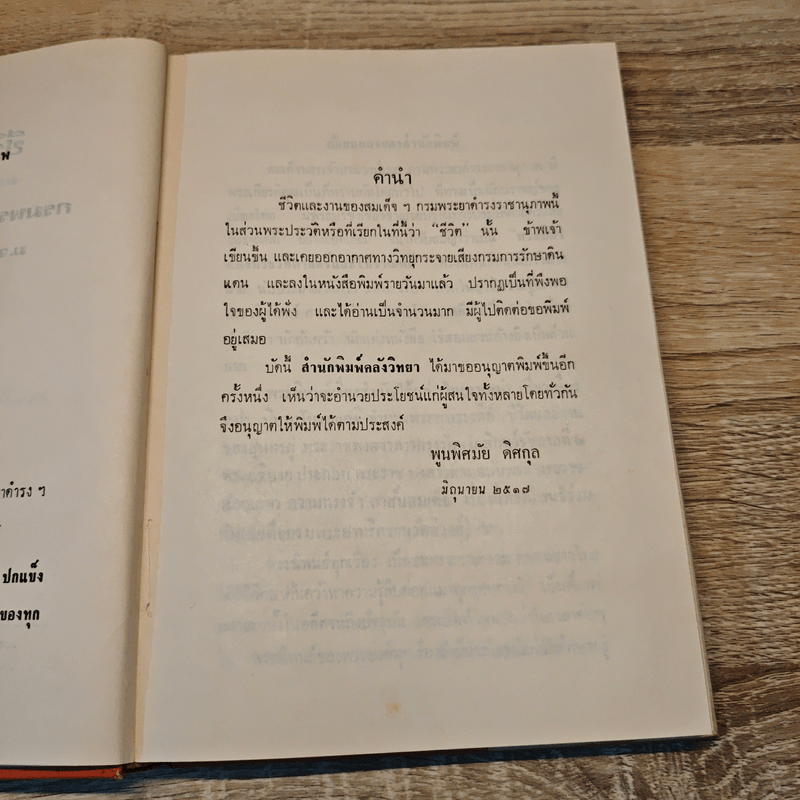 คำนำ
ชีวิตและงานของสมเด็จ ฯ กรมพระยาดำรงราชานุภาพนี้
ในส่วนพระประวัติหรือที่เรียกในที่นี้ว่า "ชีวิต" นั้น ข้าพเจ้า
เขียนขึ้น และเคยออกอากาศทางวิทยุกระจายเสียงกรมการรักษาดิน
แดน และลงในหนังสือพิมพ์รายวันมาแล้ว ปรากฏเป็นที่พึงพอ
ใจของผู้ได้ฟัง และได้อ่านเป็นจำนวนมาก มีผู้ไปติดต่อขอพิมพ์
อยู่เสมอ
บัดนี้ สำนักพิมพ์คลังวิทยา ได้มาขออนุญาตพิมพ์ขึ้นอีก
ครั้งหนึ่ง เห็นว่าจะอำนวยประโยชน์แก่ผู้สนใจทั้งหลายโดยทั่วกัน
จึงอนุญาตให้พิมพ์ได้ตามประสงค์
พูนพิศมัย ดิศกุล
มิถุนายน ๒๕๑๗
าดำรง ๆ
ปกแข็ง
ของทุก